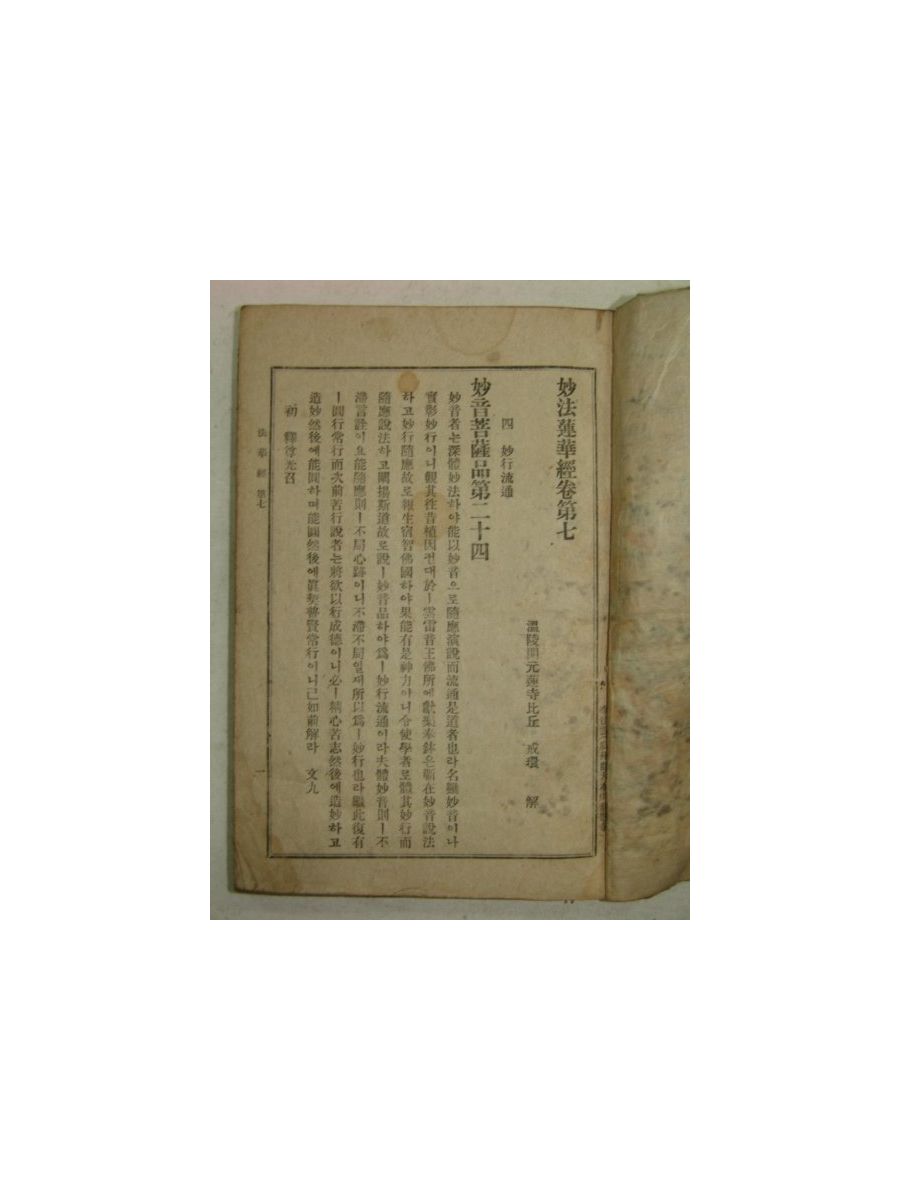 妙法蓮華經卷第七
溫陵開元蓮寺比丘 戒環 解
四 妙行流通
妙音菩薩品第二十四
妙音者는深體妙法하야能以妙音으로隨應演說而流通是道者也라名雖妙音이나
實彰妙行이니觀其往昔植因컨대於ㅣ雲雷音王佛所에獻樂奉鉢은顯在妙音說法
하고妙行隨應故로報生宿智佛國하야果能有是神力이니令使學者로體其妙行而
隨應說法하고闡揚斯道故로說ㅣ妙音品하야爲ㅣ妙行流通이라夫體妙音則ㅣ不
滯言詮이요能隨應則ㅣ不局心跡이니不滯不局일새所以爲ㅣ妙行也라繼此復有
ㅣ圓行常行而次前苦行說者는將欲以行成德이니必ㅣ精心苦志然後에造妙하고
造妙然後에能圓하며能圓然後에眞契普賢常行이니已如前解라 文九
初 釋尊光召
法華經 第七 一